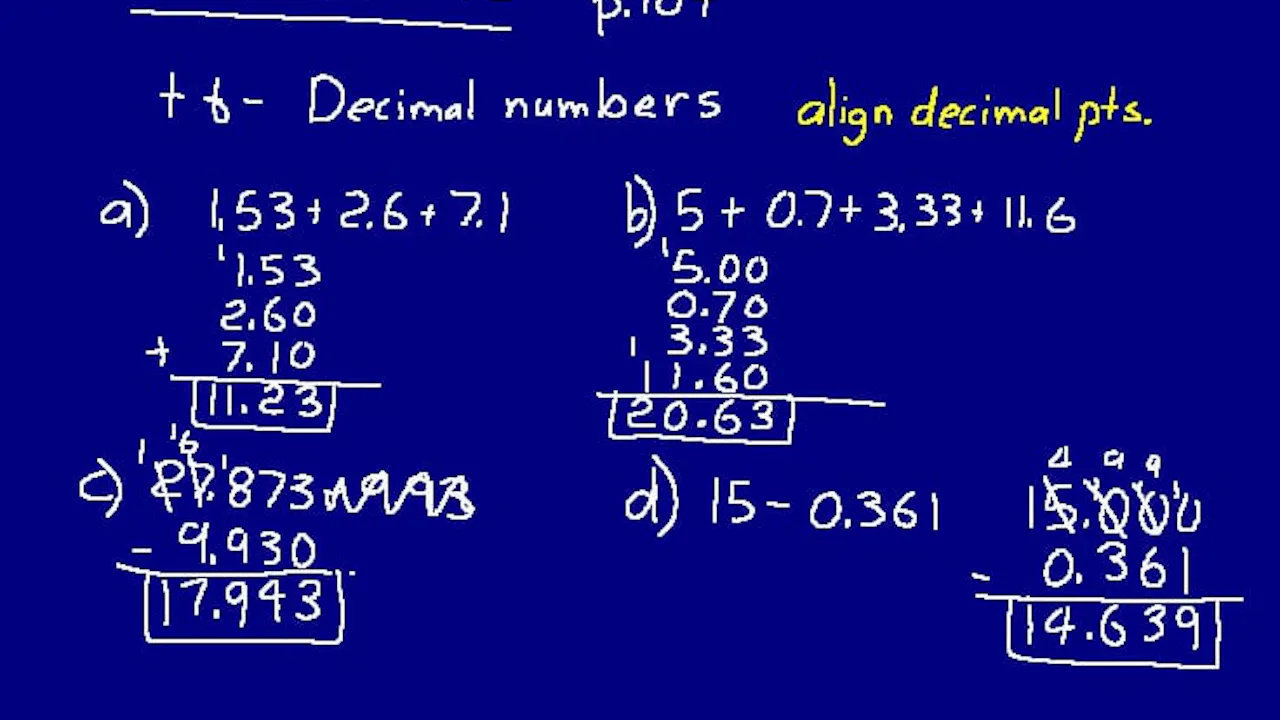 p.107
+ & - Decimal numbers align decimal pts.
a) 1.53 + 2.6 + 7.1
1
1.53
2.60
+ 7.10
11.23
b) 5 + 0.7 + 3.33 + 11.6
1
5.00
0.70
1 3.33
11.60
20.63
c) 1 16 1
27.873
- 9.930
17.943
d) 15 - 0.361
4 9 9 1
15.000
- 0.361
14.639